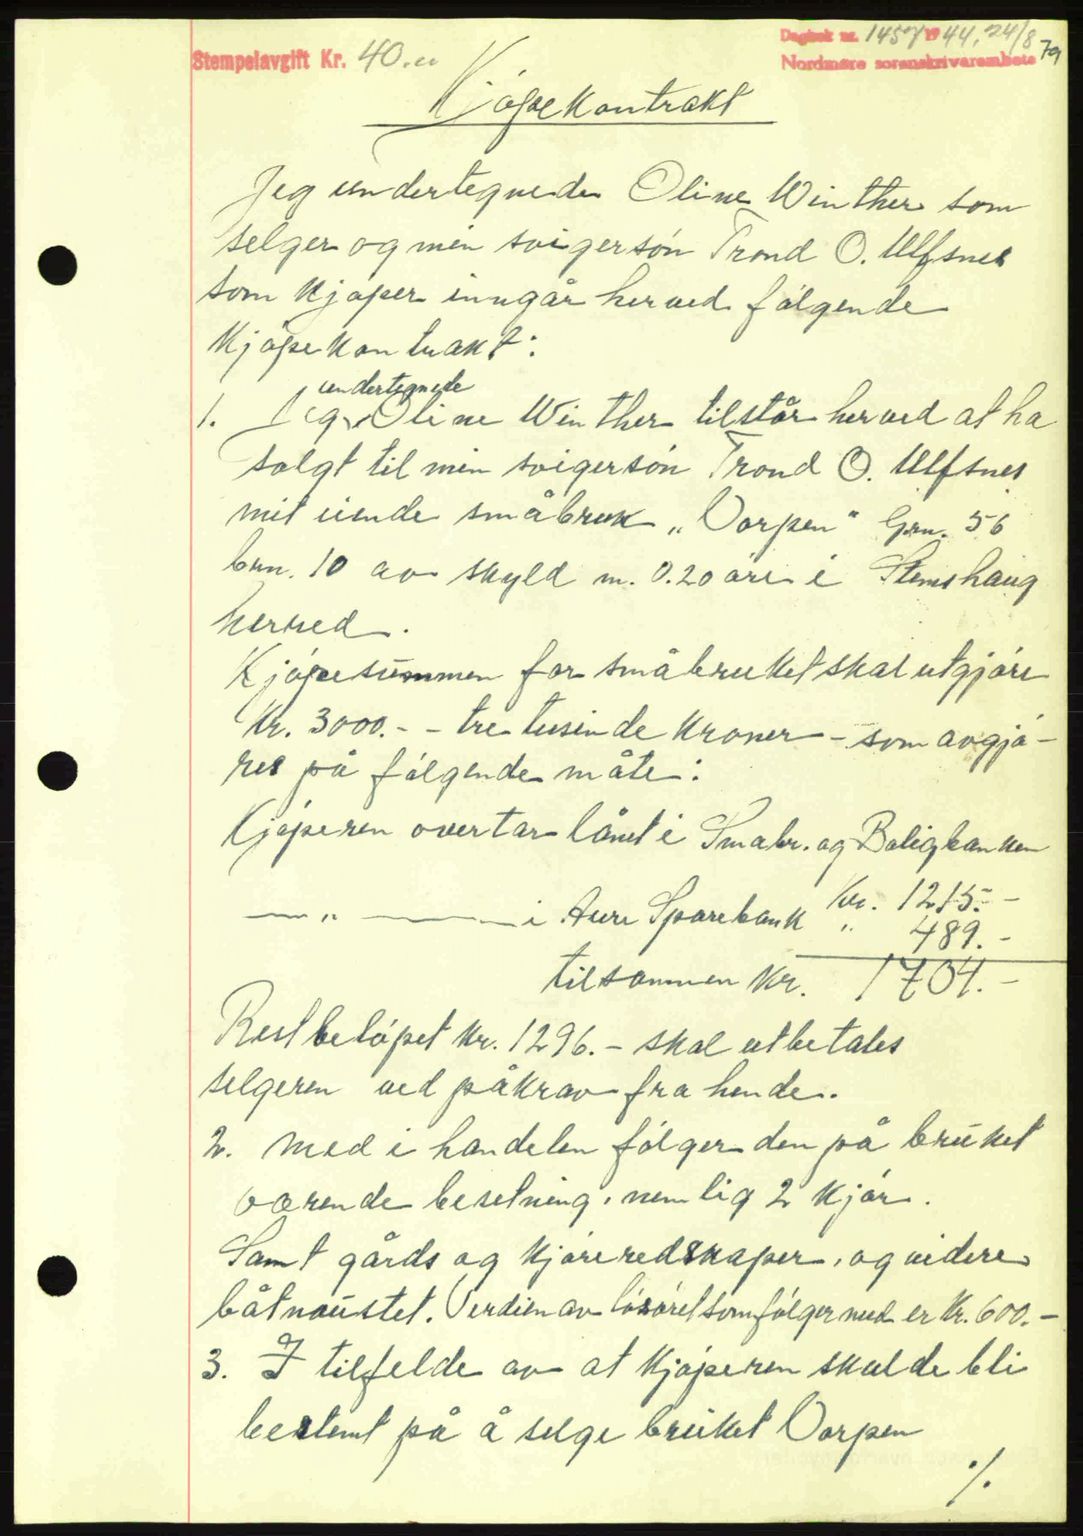 Dagbok nr. 1457 1944, 24/8
Stempelavgift Kr. 40.00
Nordmøre sorenskriverembete 79
Kjöpekontrakt
Jeg undertegnede Oline Winther som
selger og min svigersön Trond O. Ulfsnes
som kjöper inngår herved fölgende
kjöpekontrakt:
undertegnede
1. Jeg Oline Winther tilstår herved at ha
solgt til min svigersön Trond O. Ulfsnes
mit eiende småbruk "Vorpen" Grn. 56
brn. 10 av skyld m. 0.20 öre i Stemshaug
herred.
Kjöpesummen for småbruket skal utgjöre
Kr. 3000.- - tre tusinde kroner - som avgjö-
res på fölgende måte:
Kjöperen overtar lånet i Småbr. og Boligbanken
Kr. 1215.-
—„— i Aure Sparebank „ 489.-
tilsammen Kr. 1704.-
Restbelöpet kr. 1296.- skal utbetales
selgeren ved påkrav fra hende.
2. Med i handelen fölger den på bruket
værende besetning, nemlig 2 kjör.
Samt gårds og kjöreredskaper, og videre
båtnaustet. Verdien av lösöret som fölger med er Kr. 600.-
3. I tilfelde av at kjöperen skulde bli
bestemt på å selge bruket Vorpen
./.